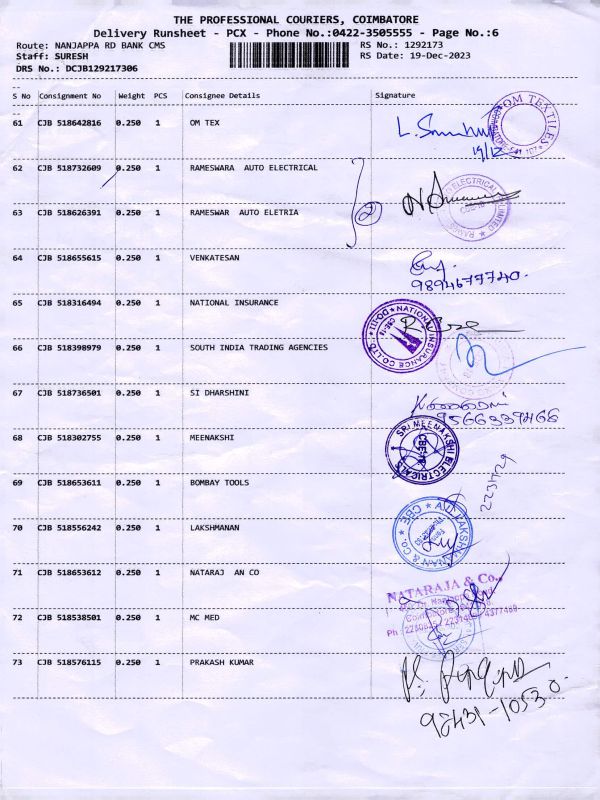 THE PROFESSIONAL COURIERS, COIMBATORE
Delivery Runsheet - PCX - Phone No.:0422-3505555 - Page No.:6
Route: NANJAPPA RD BANK CMS RS No.: 1292173
Staff: SURESH RS Date: 19-Dec-2023
DRS No.: DCJB129217306
S No Consignment No Weight PCS Consignee Details Signature
61 CJB 518642816 0.250 1 OM TEX
OM TEXTILES
19/12
62 CJB 518732609 0.250 1 RAMESWARA AUTO ELECTRICAL
2
63 CJB 518626391 0.250 1 RAMESWAR AUTO ELETRIA
64 CJB 518655615 0.250 1 VENKATESAN
9894677740.
65 CJB 518316494 0.250 1 NATIONAL INSURANCE
NATIONAL INSURANCE CO.LTD. DO-III
66 CJB 518398979 0.250 1 SOUTH INDIA TRADING AGENCIES
67 CJB 518736501 0.250 1 SI DHARSHINI
9566339468
68 CJB 518302755 0.250 1 MEENAKSHI
SRI MEENAKSHI ELECTRICALS
69 CJB 518653611 0.250 1 BOMBAY TOOLS
2234729
70 CJB 518556242 0.250 1 LAKSHMANAN
71 CJB 518653612 0.250 1 NATARAJ AN CO
NATARAJA & Co.,
72 CJB 518538501 0.250 1 MC MED
73 CJB 518576115 0.250 1 PRAKASH KUMAR
92431-10530